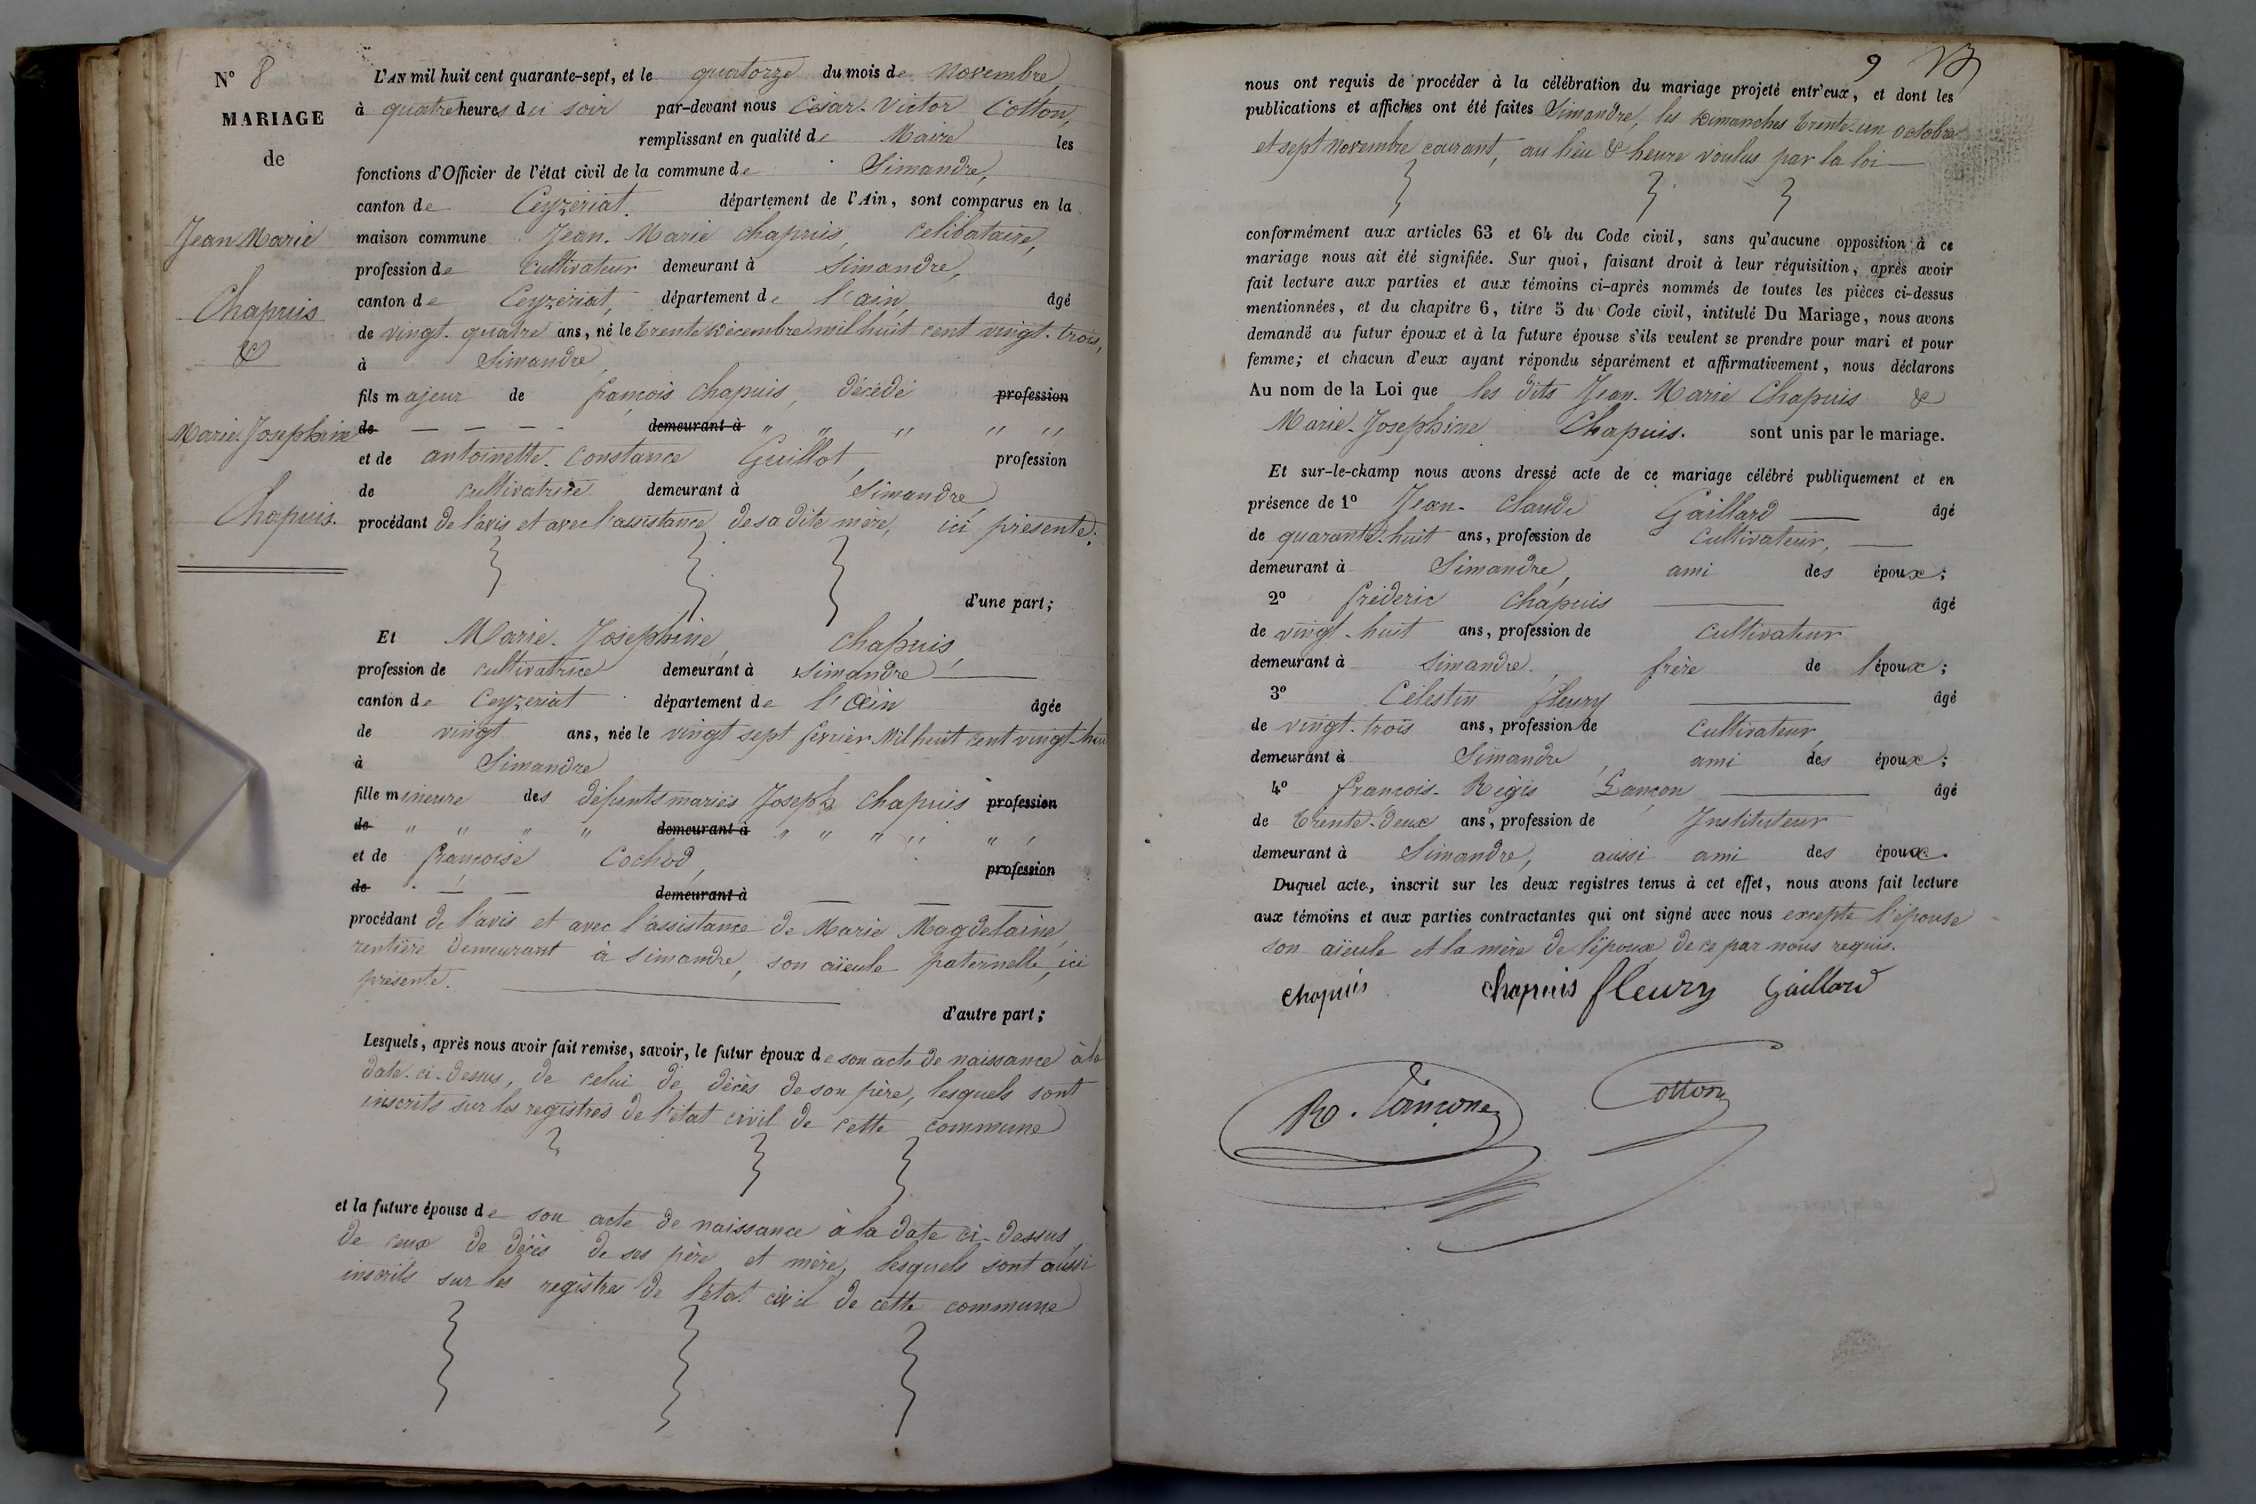 N° 8
MARIAGE
de
Jean Marie
Chapuis
&
Marie Josephine
Chapuis.
L'AN mil huit cent quarante-sept, et le quatorze du mois de Novembre
à quatre heures du soir par-devant nous César-Victor Cotton,
remplissant en qualité de Maire les
fonctions d'Officier de l'état civil de la commune de Simandre,
canton de Ceyzeriat. département de l'Ain, sont comparus en la
maison commune Jean-Marie Chapuis, celibataire,
profession de cultivateur demeurant à Simandre,
canton de Ceyzeriat, département de l'ain, âgé
de vingt-quatre ans, né le trente Décembre mil huit cent vingt-trois,
à Simandre
fils majeur de françois Chapuis, décédé profession
de — — — - demeurant à " " " " "
et de antoinette-Constance Guillot, profession
de cultivatrice demeurant à Simandre,
procédant de l'avis et avec l'assistance de sa dite mère, ici présente;
d'une part;
Et Marie-Joséphine Chapuis,
profession de cultivatrice demeurant à Simandre
canton de Ceyzeriat département de l'ain âgée
de vingt ans, née le vingt sept fevrier Mil huit cent vingt-huit
à Simandre
fille mineure des défunts mariés Joseph Chapuis profession
de " " " " demeurant à " " " " " "
et de françoise Cochod, profession
de - — — demeurant à — — —
procédant de l'avis et avec l'assistance de Marie Magdelaine,
rentière demeurant à simandre, son aïeule paternelle, ici
présente.
d'autre part;
Lesquels, après nous avoir fait remise, savoir, le futur époux de son acte de naissance à la
date-ci-dessus, de celui de décès de son père, lesquels sont
inscrits sur les registres de l'état civil de cette commune
et la future épouse de son acte de naissance à la date ci-dessus
de ceux de décès de ses père et mère, lesquels sont aussi
inscrits sur les registres de l'état civil de cette commune
9
nous ont requis de procéder à la célébration du mariage projeté entr'eux, et dont les
publications et affiches ont été faites Simandre, les Dimanches trente-un octobre
et sept Novembre courant, au lieu & heure voulus par la loi
conformément aux articles 63 et 64 du Code civil, sans qu'aucune opposition à ce
mariage nous ait été signifiée. Sur quoi, faisant droit à leur réquisition, après avoir
fait lecture aux parties et aux témoins ci-après nommés de toutes les pièces ci-dessus
mentionnées, et du chapitre 6, titre 5 du Code civil, intitulé Du Mariage, nous avons
demandé au futur époux et à la future épouse s'ils veulent se prendre pour mari et pour
femme; et chacun d'eux ayant répondu séparément et affirmativement, nous déclarons
Au nom de la Loi que les dits Jean-Marie Chapuis &
Marie-Josephine Chapuis. sont unis par le mariage.
Et sur-le-champ nous avons dressé acte de ce mariage célébré publiquement et en
présence de 1° Jean-Claude Gaillard âgé
de quarante-huit ans, profession de Cultivateur,
demeurant à Simandre, ami des époux;
2° fréderic Chapuis âgé
de vingt-huit ans, profession de cultivateur
demeurant à Simandre, frère de l'époux;
3° Célestin fleury âgé
de vingt-trois ans, profession de cultivateur
demeurant à Simandre, ami des époux;
4° françois-Régis Lançon âgé
de trente-deux ans, profession de Instituteur
demeurant à Simandre, aussi ami des époux.
Duquel acte, inscrit sur les deux registres tenus à cet effet, nous avons fait lecture
aux témoins et aux parties contractantes qui ont signé avec nous excepté l'épouse
son aïeule et la mère de l'époux de ce par nous requis.
Chapuis chapuis fleury Gaillard
R. Lançon Cotton